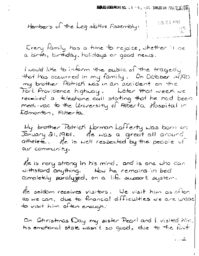 Members of the Legislative Assembly:
Every family has a time to rejoice, whether it be
a birth, birthday, holidays or good news.
I would like to inform the public of the tragedy
that has occurred in my family. On October
my brother Patrick was in an accident on the
Fort Providence highway. Later that week we
received a telephone call stating that he had been
medi-vac to the University of Alberta Hospital in
Edmonton, Alberta.
My brother Patrick Norman Lafferty was born on
January 31, He was a great all around
athlete. He is well respected by the people of
our community.
He is very strong in his mind, and is one who can
withstand anything. Now he remains in bed
completely paralyzed, on a life support system.
He seldom receives visitors. We visit him as often
as we can, due to financial difficulties we are unable
to visit him often enough.
On Christmas Day my sister Pearl and I visited him,
his emotional state wasn't so good, due to the fact